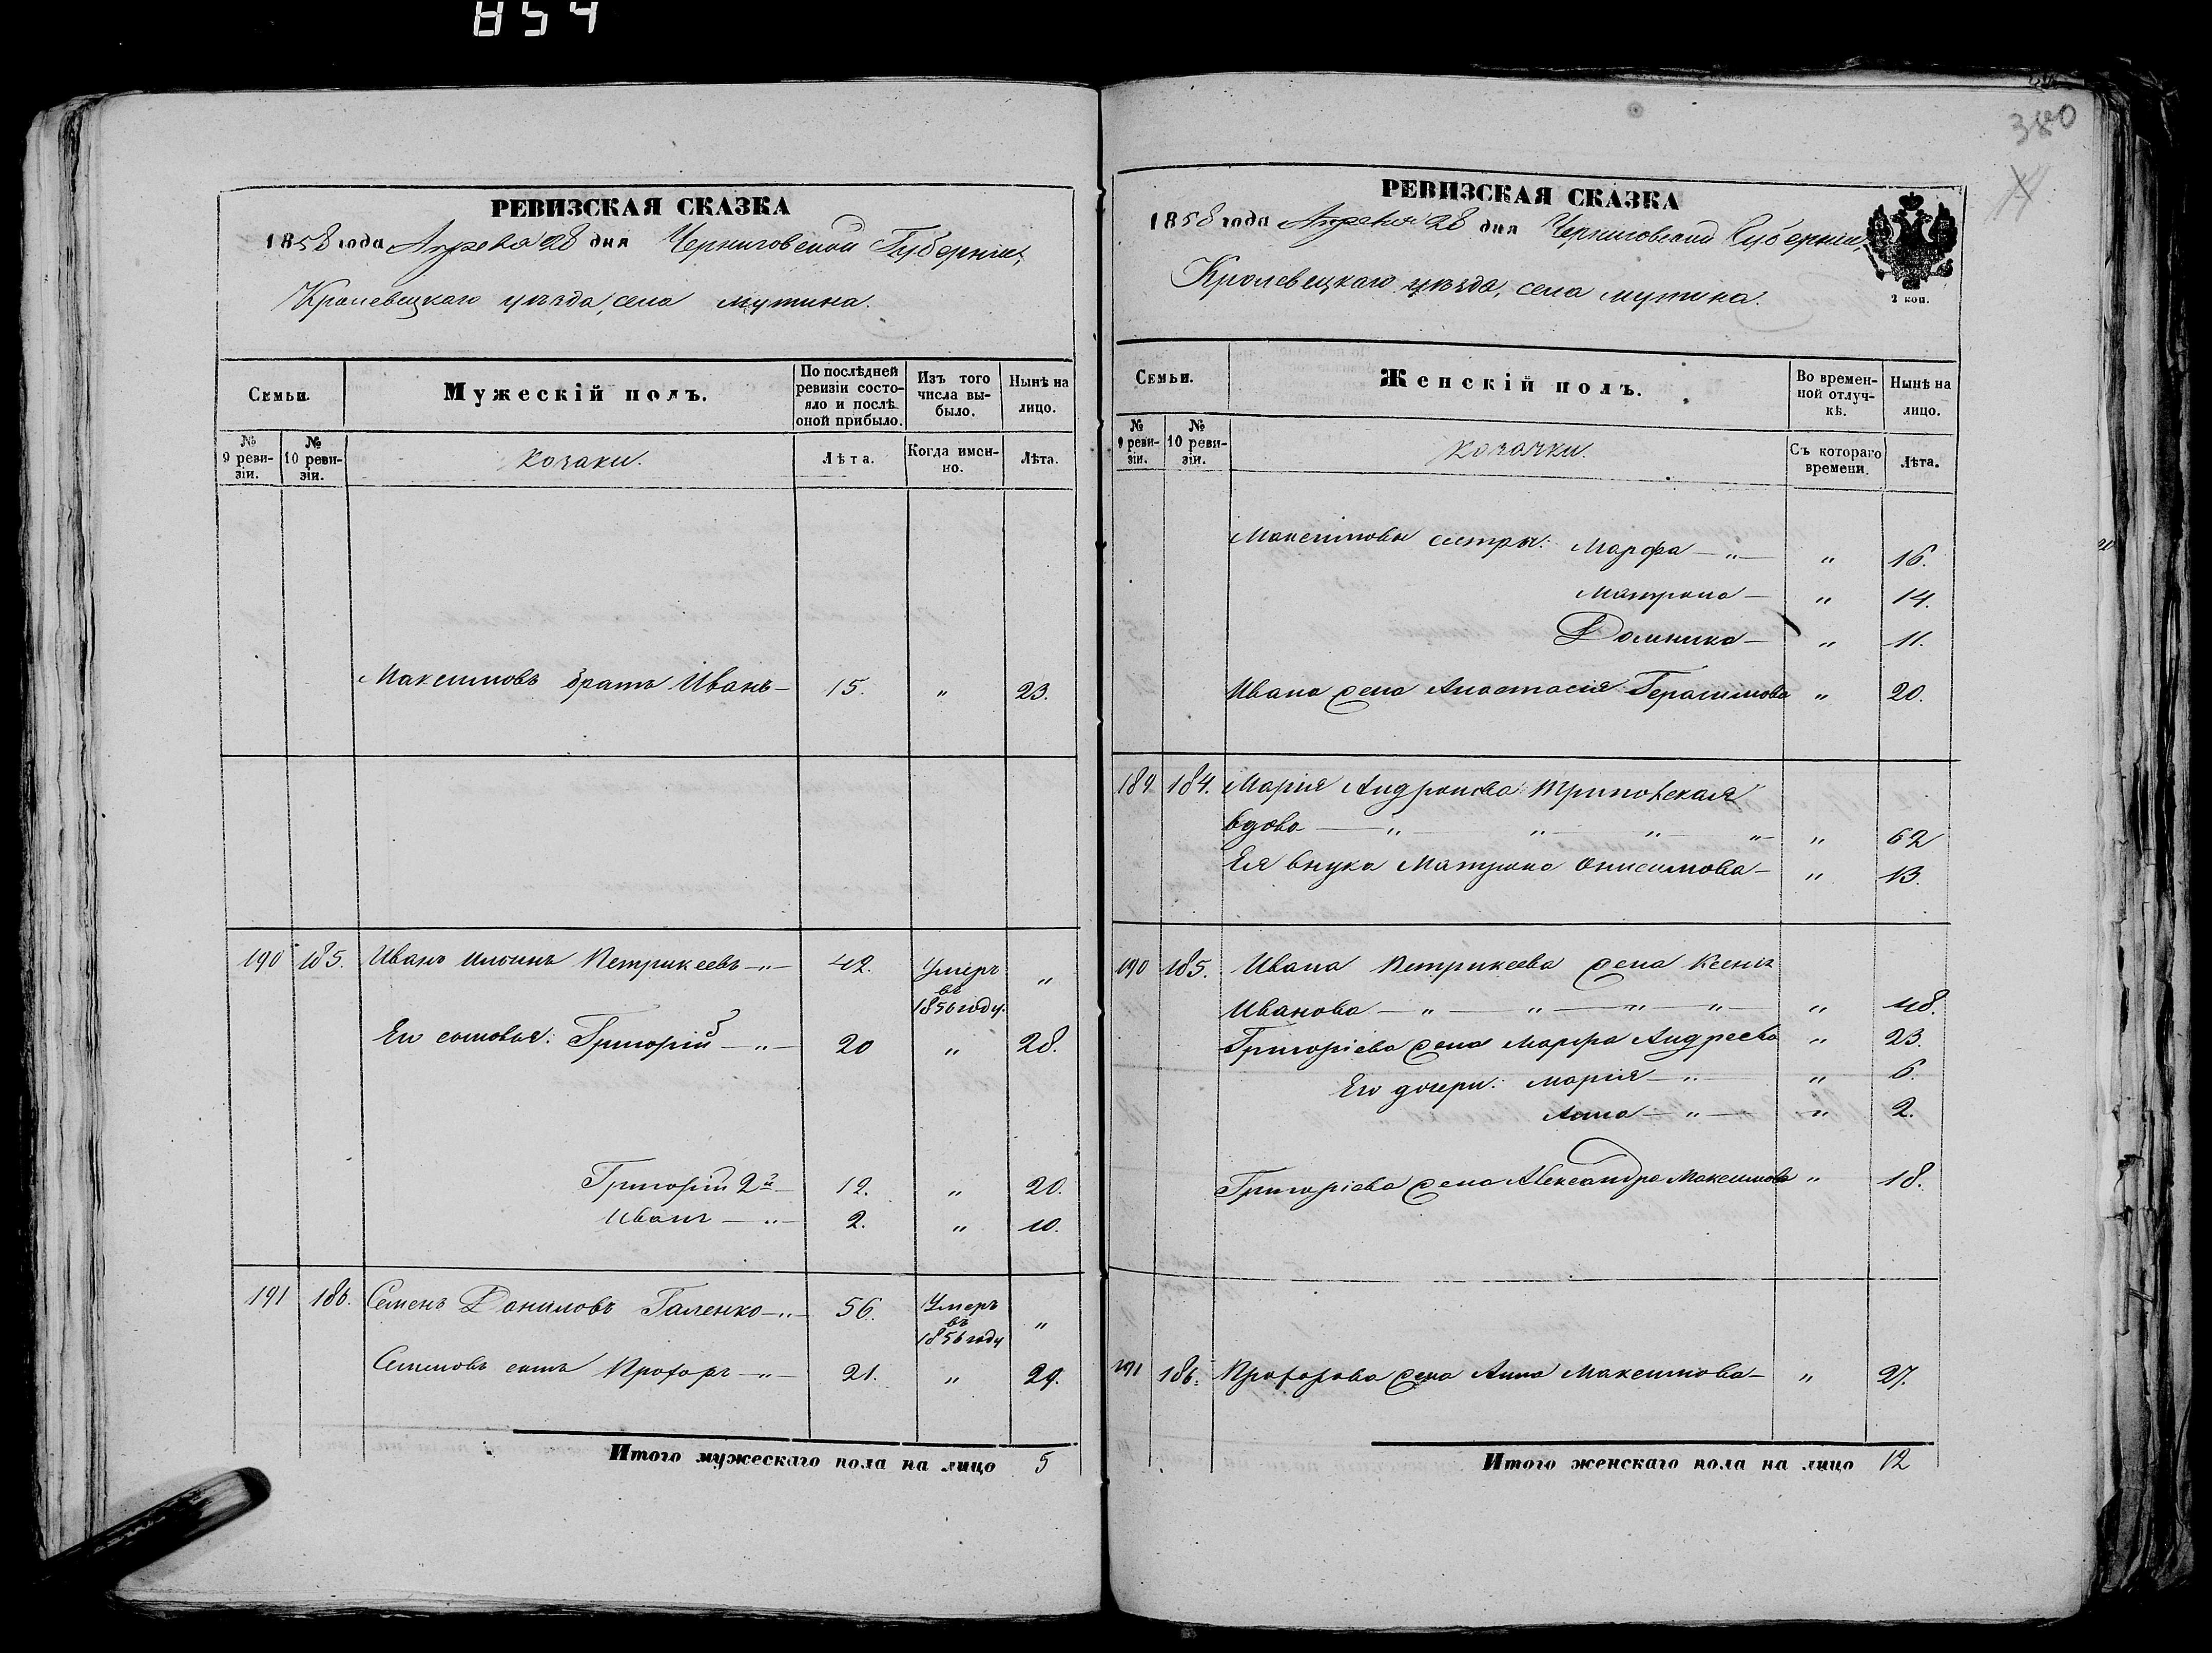 854
380
РЕВИЗСКАЯ СКАЗКА
1858 года Апреля 28 дня Черниговской Губернии,
Кролевецкаго уезда, села Мутина.
Семьи.
Мужескій полъ.
По послѣдней ревизіи состояло и послѣ оной прибыло.
Изъ того числа выбыло.
Нынѣ на лицо.
№ 9 ревизіи.
№ 10 ревизіи.
Козаки.
Лѣта.
Когда именно.
Лѣта.
Максимовъ братъ Иванъ — 15. " 23.
190 185. Иванъ Ильинъ Петрикеевъ — " — 42. Умеръ въ 1856 году. "
Его сыновья: Григорій — " — 20 " 28.
Григорій 2й — 12. " 20.
Иванъ — " — 2. " 10.
191 186. Семенъ Даниловъ Галенко — " — 56. Умеръ въ 1856 году "
Семеновъ сынъ Прохоръ — " — 21. " 29.
Итого мужескаго пола на лицо 5
РЕВИЗСКАЯ СКАЗКА
1858 года Апреля 28 дня Черниговской Губернии,
Кролевецкаго уезда, села Мутина.
2 коп.
Семьи.
Женскій полъ.
Во временной отлучкѣ.
Нынѣ на лицо.
№ 9 ревизіи.
№ 10 ревизіи.
Козачки.
Съ котораго времени.
Лѣта.
Максимовы сестры: Марфа — " — " 16.
Матрона — " 14.
Домника — " 11.
Ивана жена Анастасія Герасимова " 20.
189 184. Марія Андронова
вдова — " — " — " — " — " 62
Ея внука Матрона Онисимова — " 13.
190 185. Ивана Петрикеева жена Ксенія
Иванова — " — " — " — " — " 48.
Григоріева жена Марфа Андреева " 23.
Его дочери: Марія — " — " 6.
Анна — " — " 2.
Григоріева жена Александра Максимова " 18.
191 186. Прохорова жена Анна Максимова — " 27.
Итого женскаго пола на лицо 12